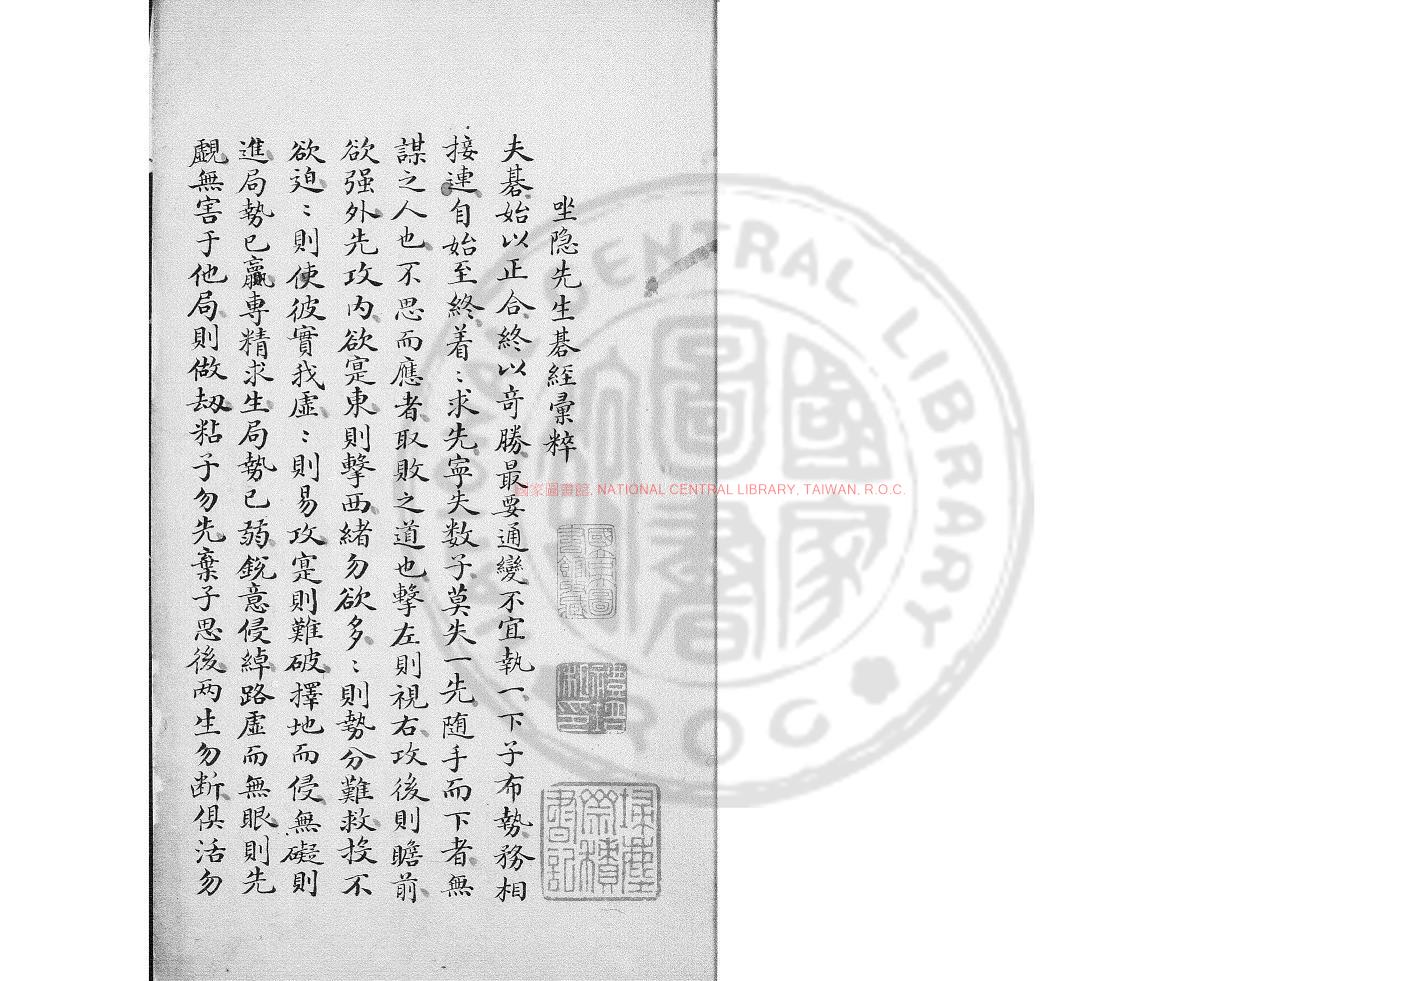 坐隐先生碁經彙粹
夫碁始以正合終以竒勝最要通變不宜執一下子布勢務相
接連自始至終着：求先寜失数子莫失一先随手而下者無
謀之人也不思而應者取敗之道也擊左則視右攻後則瞻前
欲强外先攻内欲寔東則擊西緒勿欲多：則勢分難救投不
欲迫：則使彼實我虛：則易攻寔則難破擇地而侵無礙則
進局勢已贏專精求生局勢已弱銳意侵綽路虛而無眼則先
覷無害于他局則做刼粘子勿先棄子思後两生勿断俱活勿
國家圖書館, NATIONAL CENTRAL LIBRARY, TAIWAN, R.O.C.
NATIONAL CENTRAL LIBRARY
R.O.C.
國家圖書